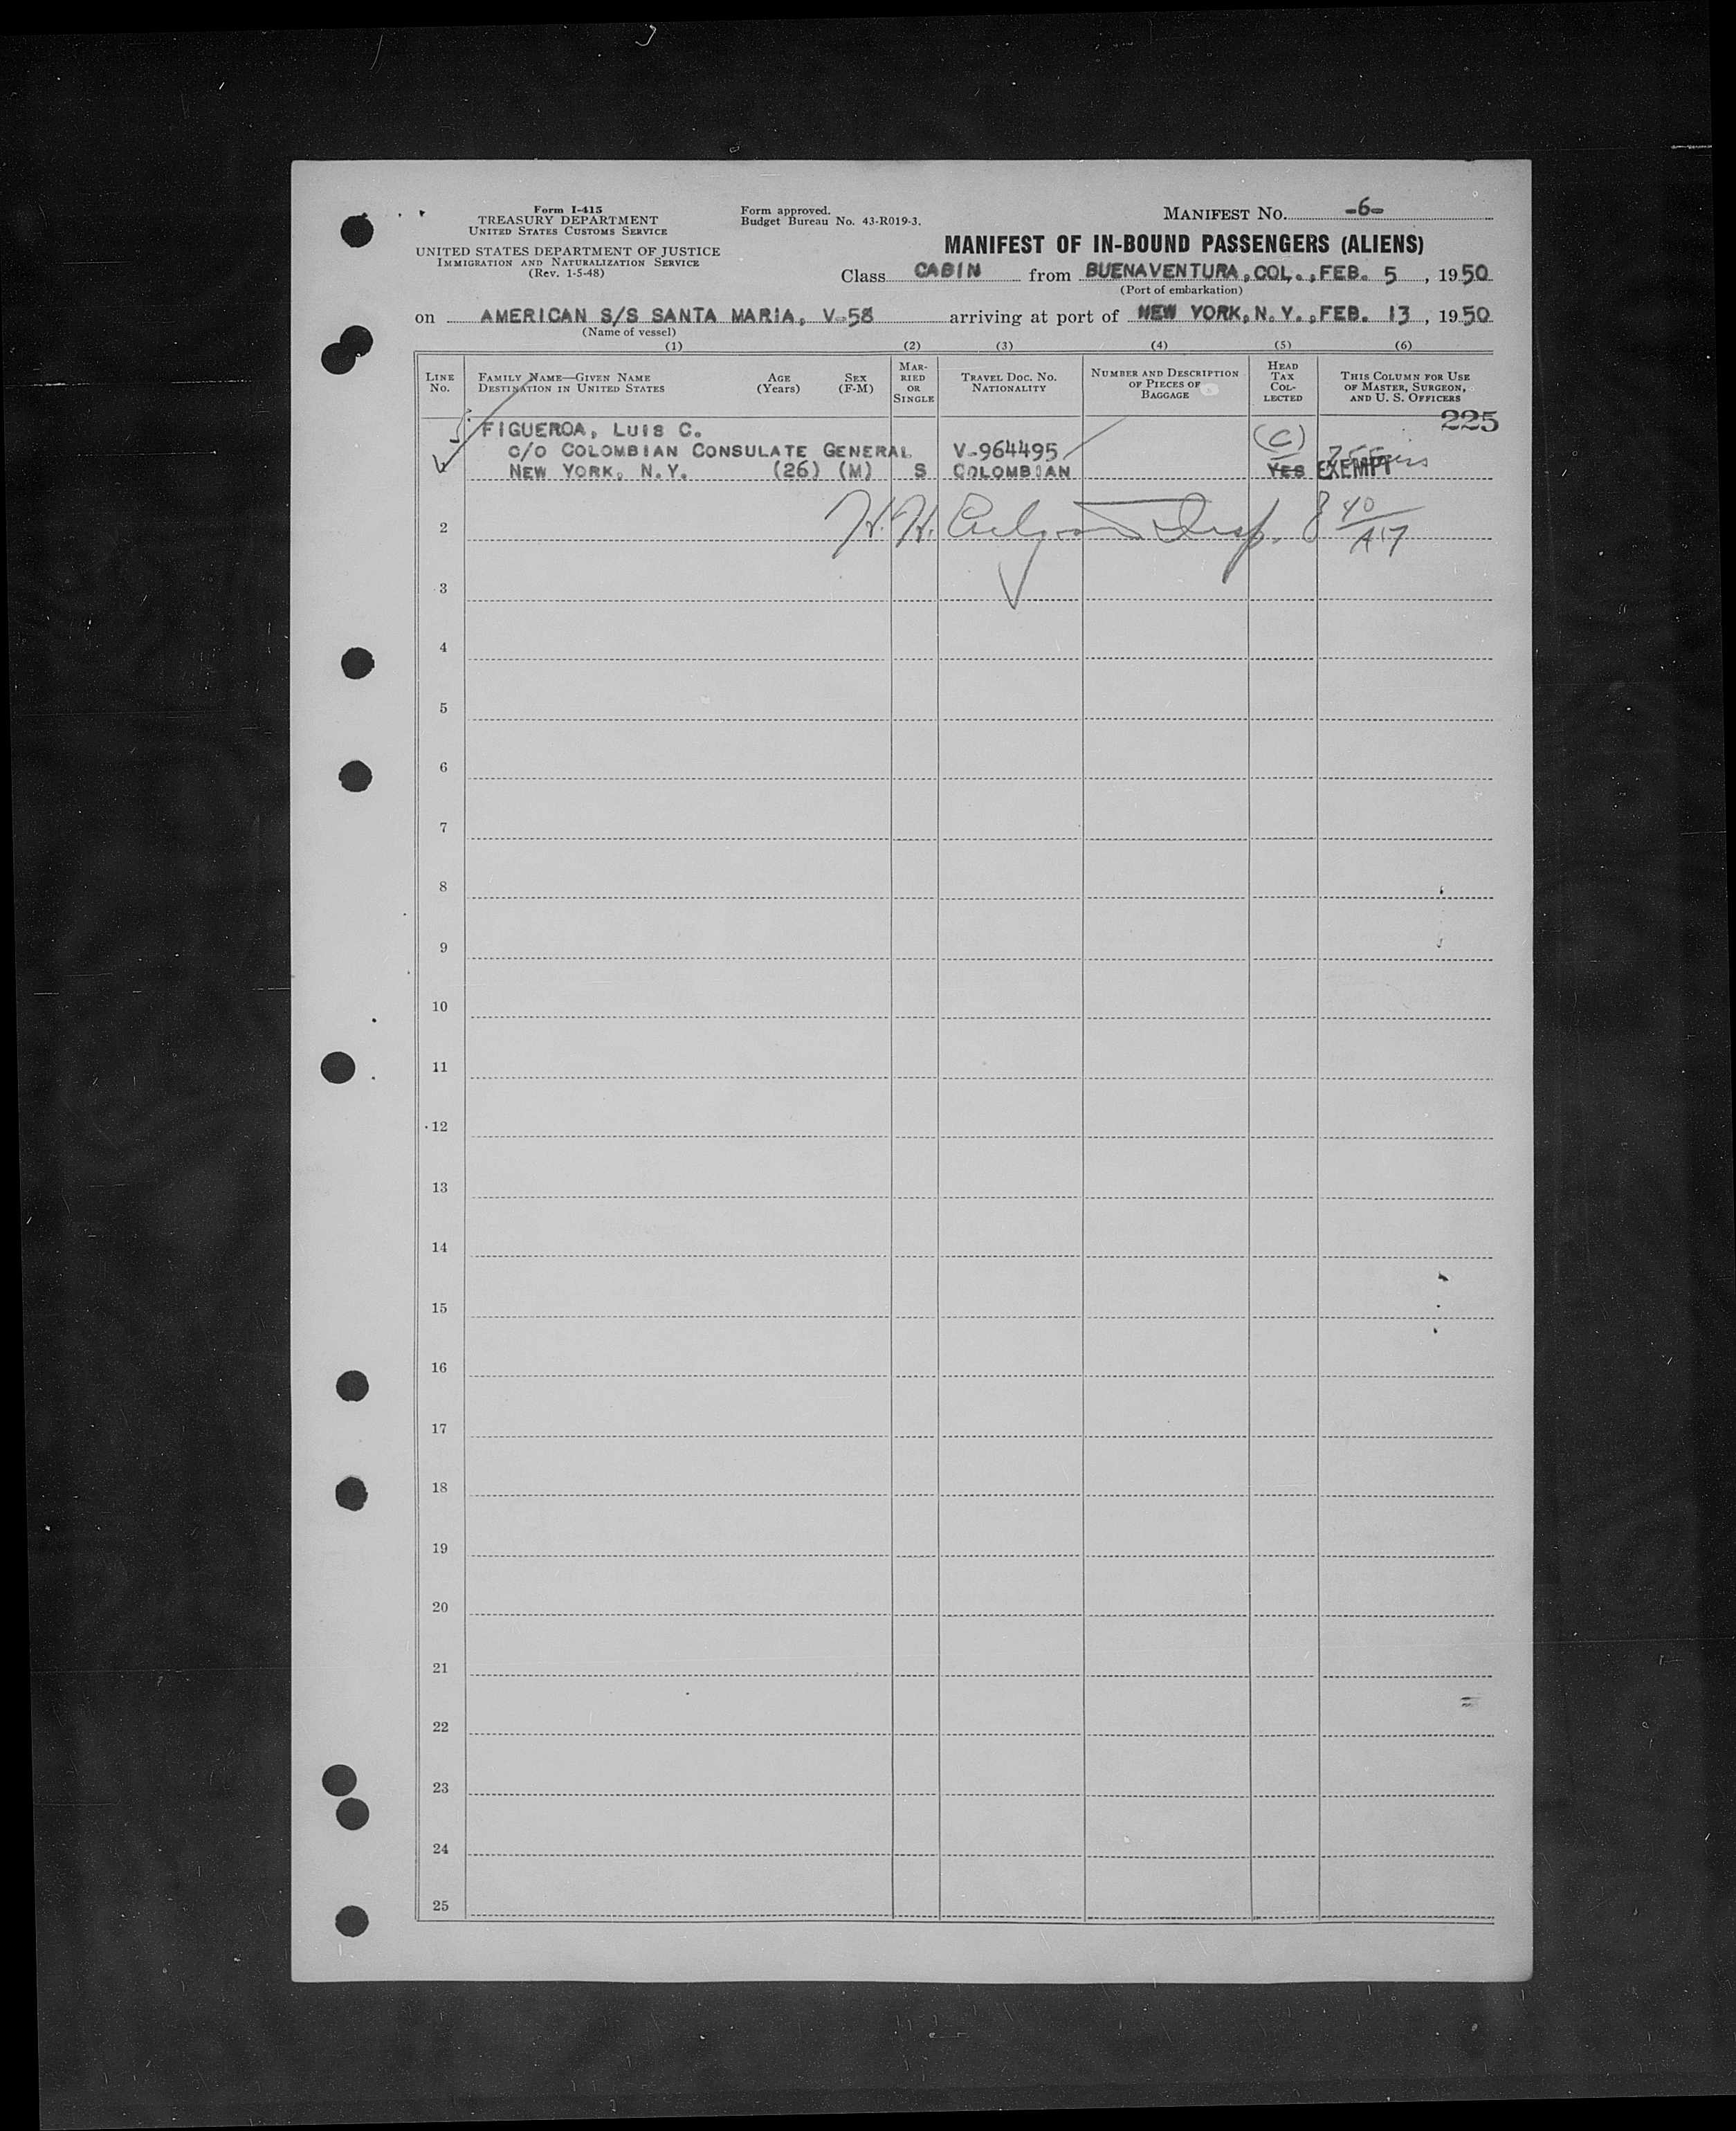 Form I-415
TREASURY DEPARTMENT
UNITED STATES CUSTOMS SERVICE
UNITED STATES DEPARTMENT OF JUSTICE
IMMIGRATION AND NATURALIZATION SERVICE
(Rev. 1-5-48)
Form approved.
Budget Bureau No. 43-R019-3.
MANIFEST NO. -6-
MANIFEST OF IN-BOUND PASSENGERS (ALIENS)
Class CABIN from BUENAVENTURA, COL., FEB. 5, 1950
(Port of embarkation)
on AMERICAN S/S SANTA MARIA, V-58 arriving at port of NEW YORK, N.Y., FEB. 13, 1950
(Name of vessel)
(1) (2) (3) (4) (5) (6)
LINE NO.
FAMILY NAME—GIVEN NAME
DESTINATION IN UNITED STATES
AGE (Years)
SEX (F-M)
MARRIED OR SINGLE
TRAVEL DOC. NO.
NATIONALITY
NUMBER AND DESCRIPTION OF PIECES OF BAGGAGE
HEAD TAX COLLECTED
THIS COLUMN FOR USE OF MASTER, SURGEON, AND U. S. OFFICERS
225
FIGUEROA, LUIS C. (C)
C/O COLOMBIAN CONSULATE GENERAL V-964495
NEW YORK, N.Y. (26) (M) S COLOMBIAN YES EXEMPT
2 H. H. Insp. 8 40/A17
3
4
5
6
7
8
9
10
11
12
13
14
15
16
17
18
19
20
21
22
23
24
25